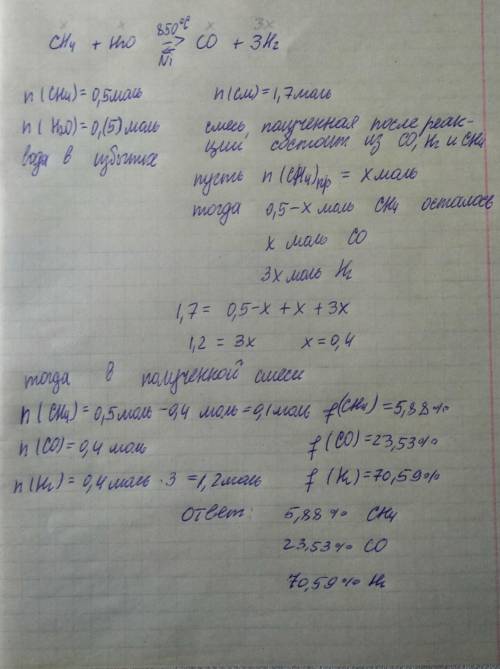 x x 3x
850°C
CH4 + H2O ⇄ CO + 3H2
Ni
n(CH4)=0,5моль n(см)=1,7моль
n(H2O)=0,(5)моль смесь, полученная после реак-
вода в избытке ции состоит из CO, H2 и CH4
пусть n(CH4)пр = x моль
тогда 0,5-x моль CH4 осталось
x моль CO
3x моль H2
1,7 = 0,5-x + x + 3x
1,2 = 3x x=0,4
тогда в полученной смеси
n(CH4)=0,5моль-0,4 моль=0,1моль f(CH4)=5,88%
n(CO)=0,4 моль f(CO)=23,53%
n(H2)=0,4моль·3 =1,2моль f(H2)=70,59%
Ответ: 5,88% CH4
23,53% CO
70,59% H2